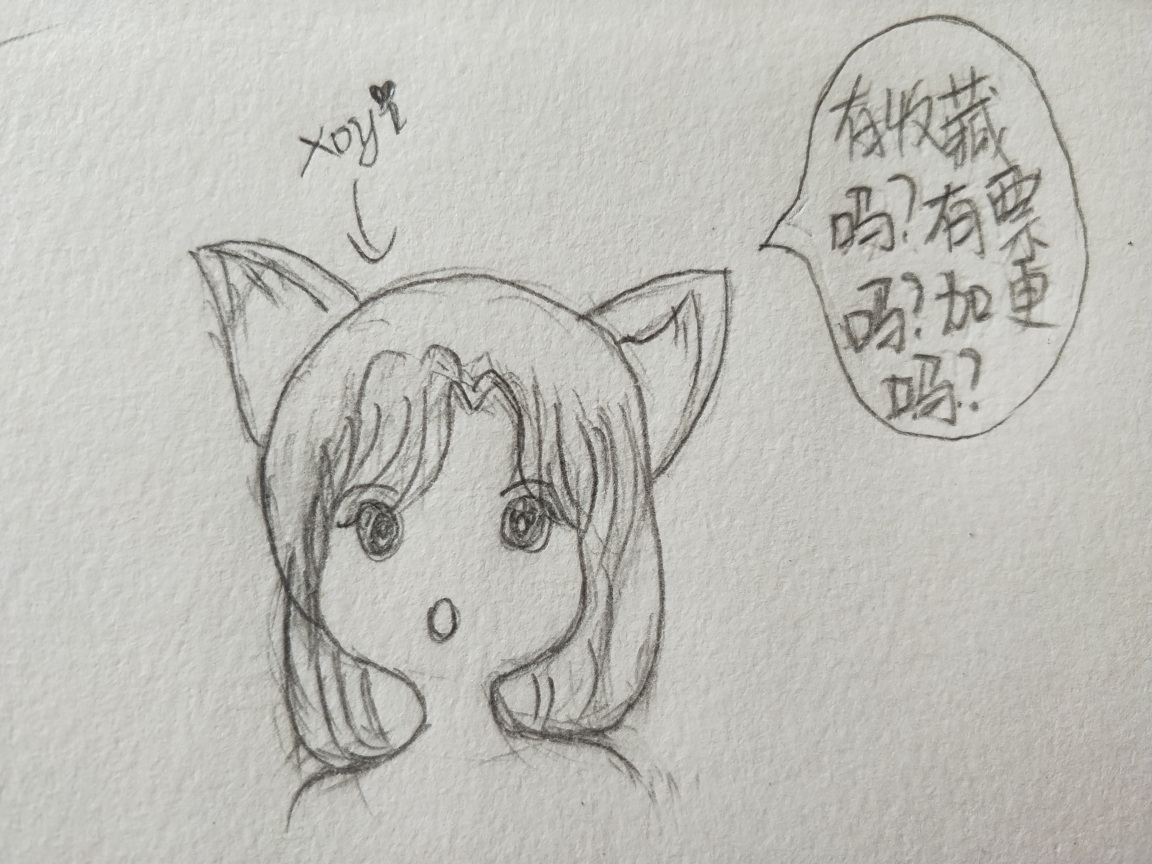 xoyi
有收藏
吗?有票
吗?加更
吗?